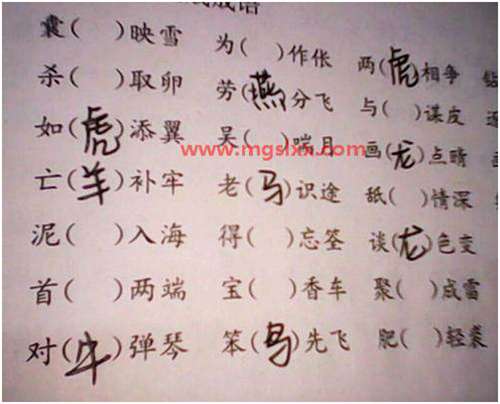 成语
囊( )映雪 为( )作伥 两(虎)相争
杀( )取卵 劳(燕)分飞 与( )谋皮
如(虎)添翼 吴( )喘月 画(龙)点睛
www.mgslxx.com
亡(羊)补牢 老(马)识途 舐( )情深
泥( )入海 得( )忘筌 谈(龙)色变
首( )两端 宝( )香车 聚( )成雷
对(牛)弹琴 笨(鸟)先飞 肥( )轻裘